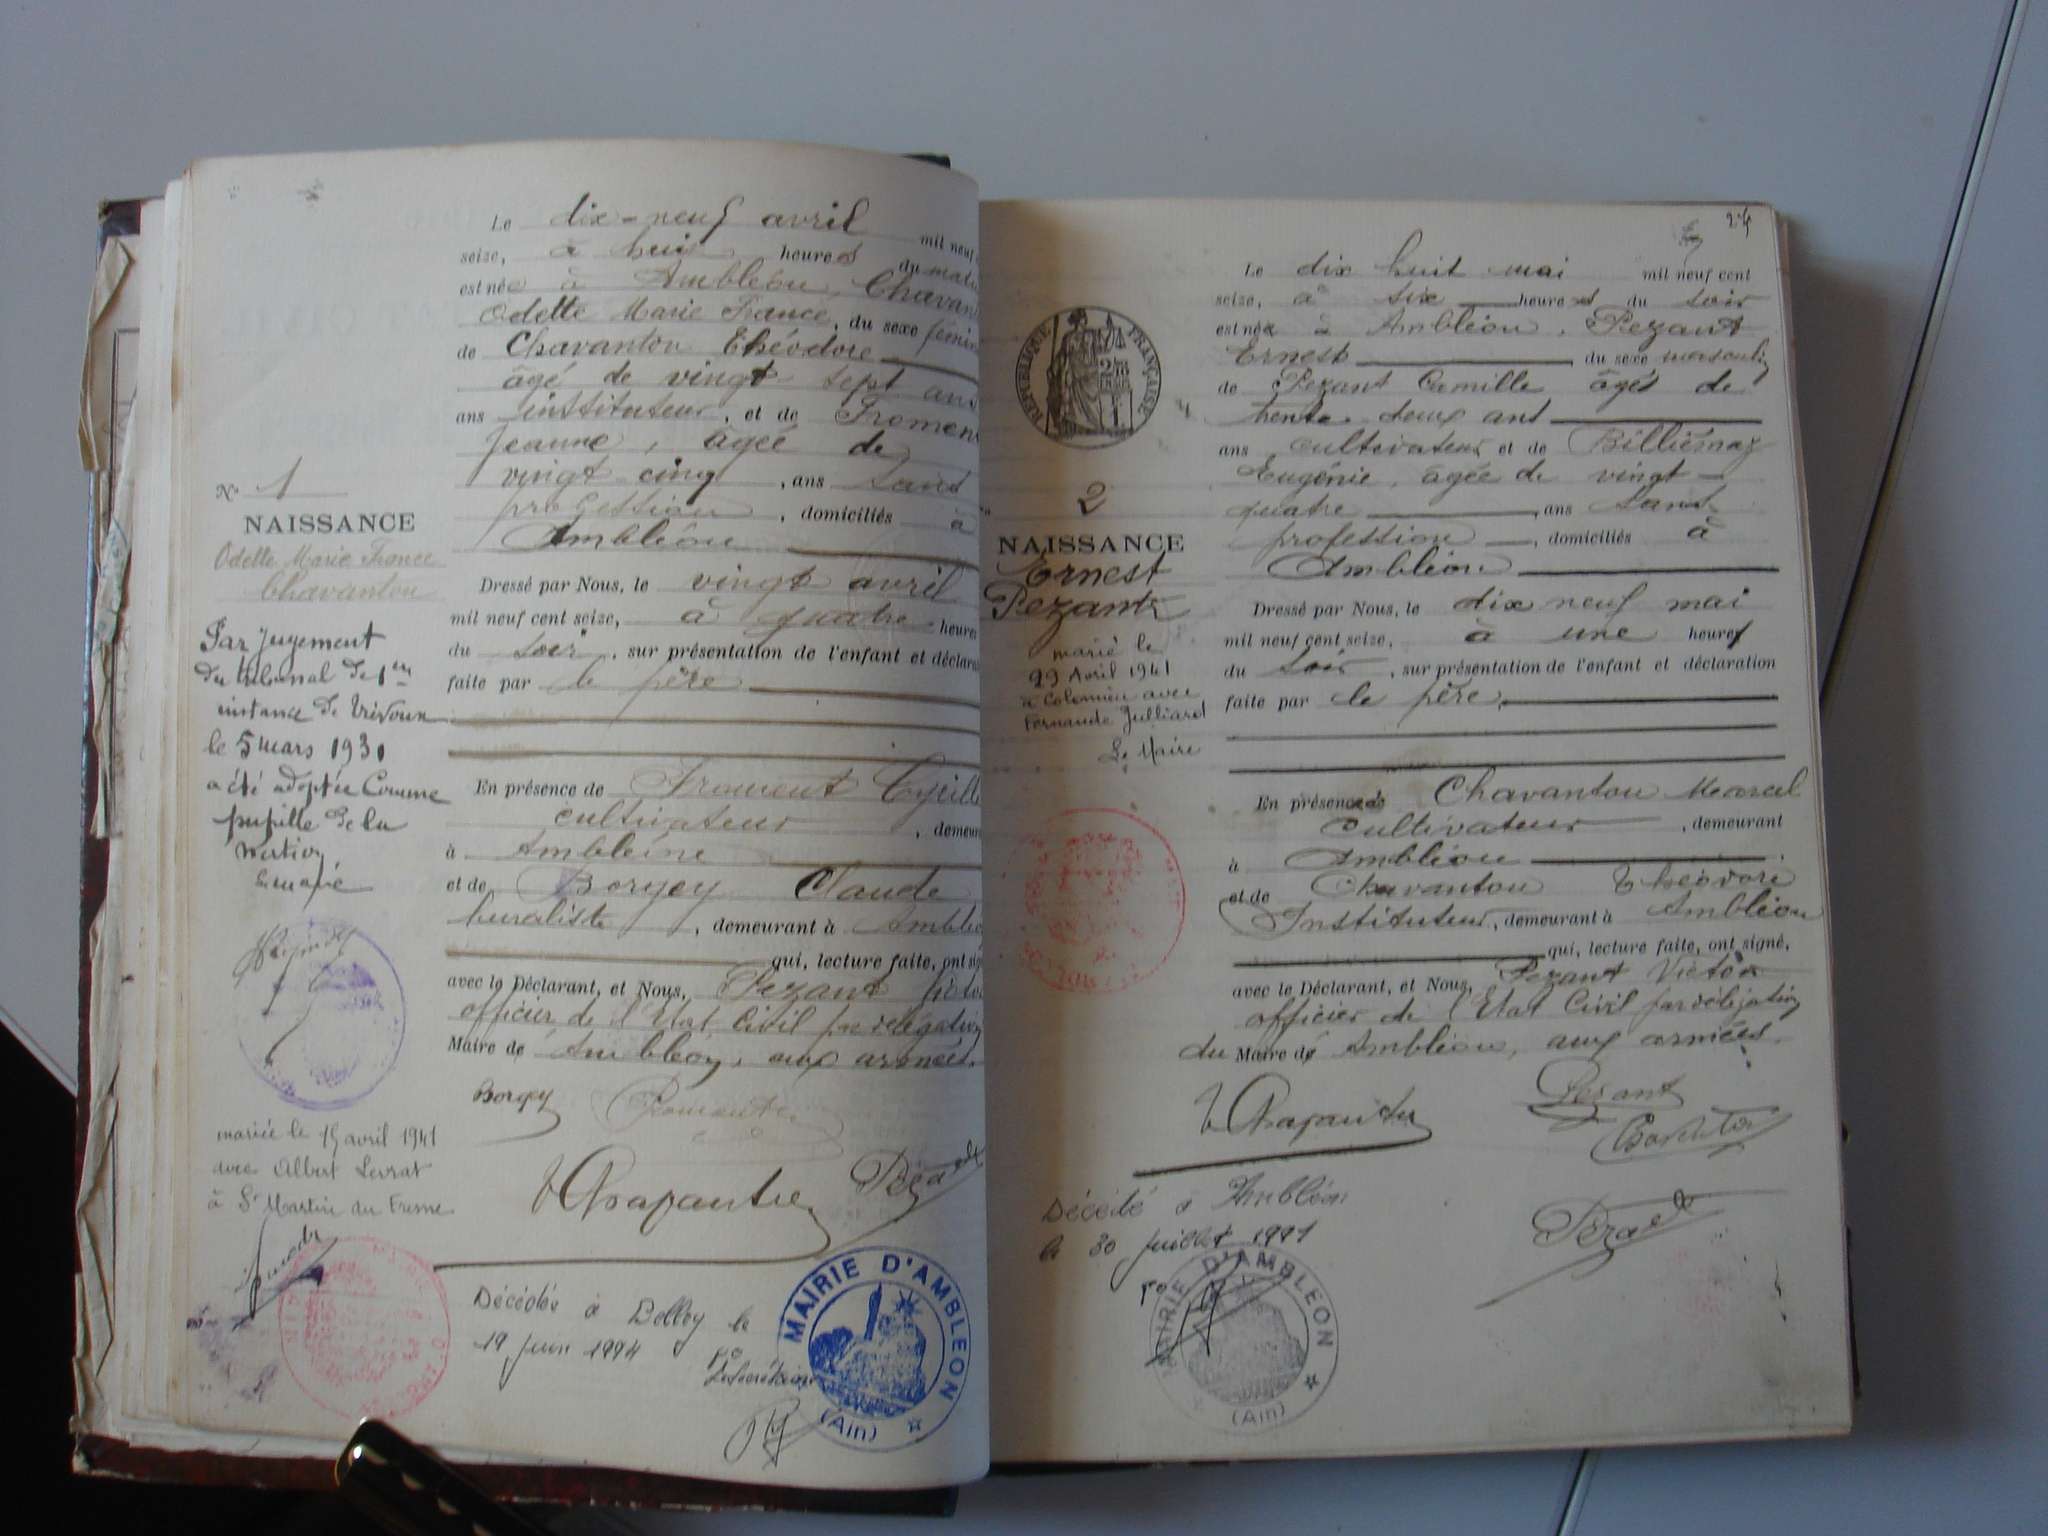 Le dix-neuf avril mil neuf
seize, à huit heures du matin
est née à Ambléon, Chavan
Odette Marie France, du sexe fémin
de Chavanton Théodore
âgé de vingt-sept ans
ans instituteur, et de Fromen
Jeanne, âgée de
vingt cinq, ans sans
profession, domiciliés à
Ambléon
N° 1
NAISSANCE
Odette Marie France
Chavanton
Dressé par Nous, le vingt avril
mil neuf cent seize, à quatre heures
du soir, sur présentation de l'enfant et déclara
faite par le père
Par jugement
du tribunal de 1ère
instance de Trévoux
le 5 mars 1931
a été adoptée Comme
pupille de la
Nation
Le maire
En présence de Froment Cyrille
cultivateur, demeur
à Ambléon
et de Borgey Claude
buraliste, demeurant à Ambléo
qui, lecture faite, ont sig
avec le Déclarant, et Nous, Pezant Victo
officier de l'Etat Civil par délégation
Maire de Ambléon, aux armées.
Borgey
mariée le 15 avril 1941
avec Albert Levrat
à St Martin du Fresne
Décédée à Belley le
19 Juin 1994
po
Le Secrétaire
MAIRIE D'AMBLEON
(Ain)
24
Le dix huit mai mil neuf cent
seize, à six heures du soir
est né à Ambléon, Pezant
Ernest du sexe masculin
de Pezant Camille âgé de
trente deux ans
ans cultivateur et de Billiémaz
Eugénie, âgée de vingt-
quatre, ans sans
profession, domiciliés à
Ambléon
RÉPUBLIQUE FRANÇAISE
2
NAISSANCE
Ernest
Pezant
Dressé par Nous, le dix neuf mai
mil neuf cent seize, à une heure
du soir, sur présentation de l'enfant et déclaration
faite par le père,
marié le
29 Avril 1941
à Colomieu avec
Fernande Julliard
Le Maire
En présence de Chavanton Marcel
cultivateur, demeurant
à Ambléon
et de Chavanton Théodore
Instituteur, demeurant à Ambléon
qui, lecture faite, ont signé,
avec le Déclarant, et Nous, Pezant Victor
officier de l'Etat Civil par délégation
du Maire de Ambléon, aux armées.
Pezant
Décédé à Ambléon
le 30 Juillet 1991
po
MAIRIE D'AMBLEON
(Ain)